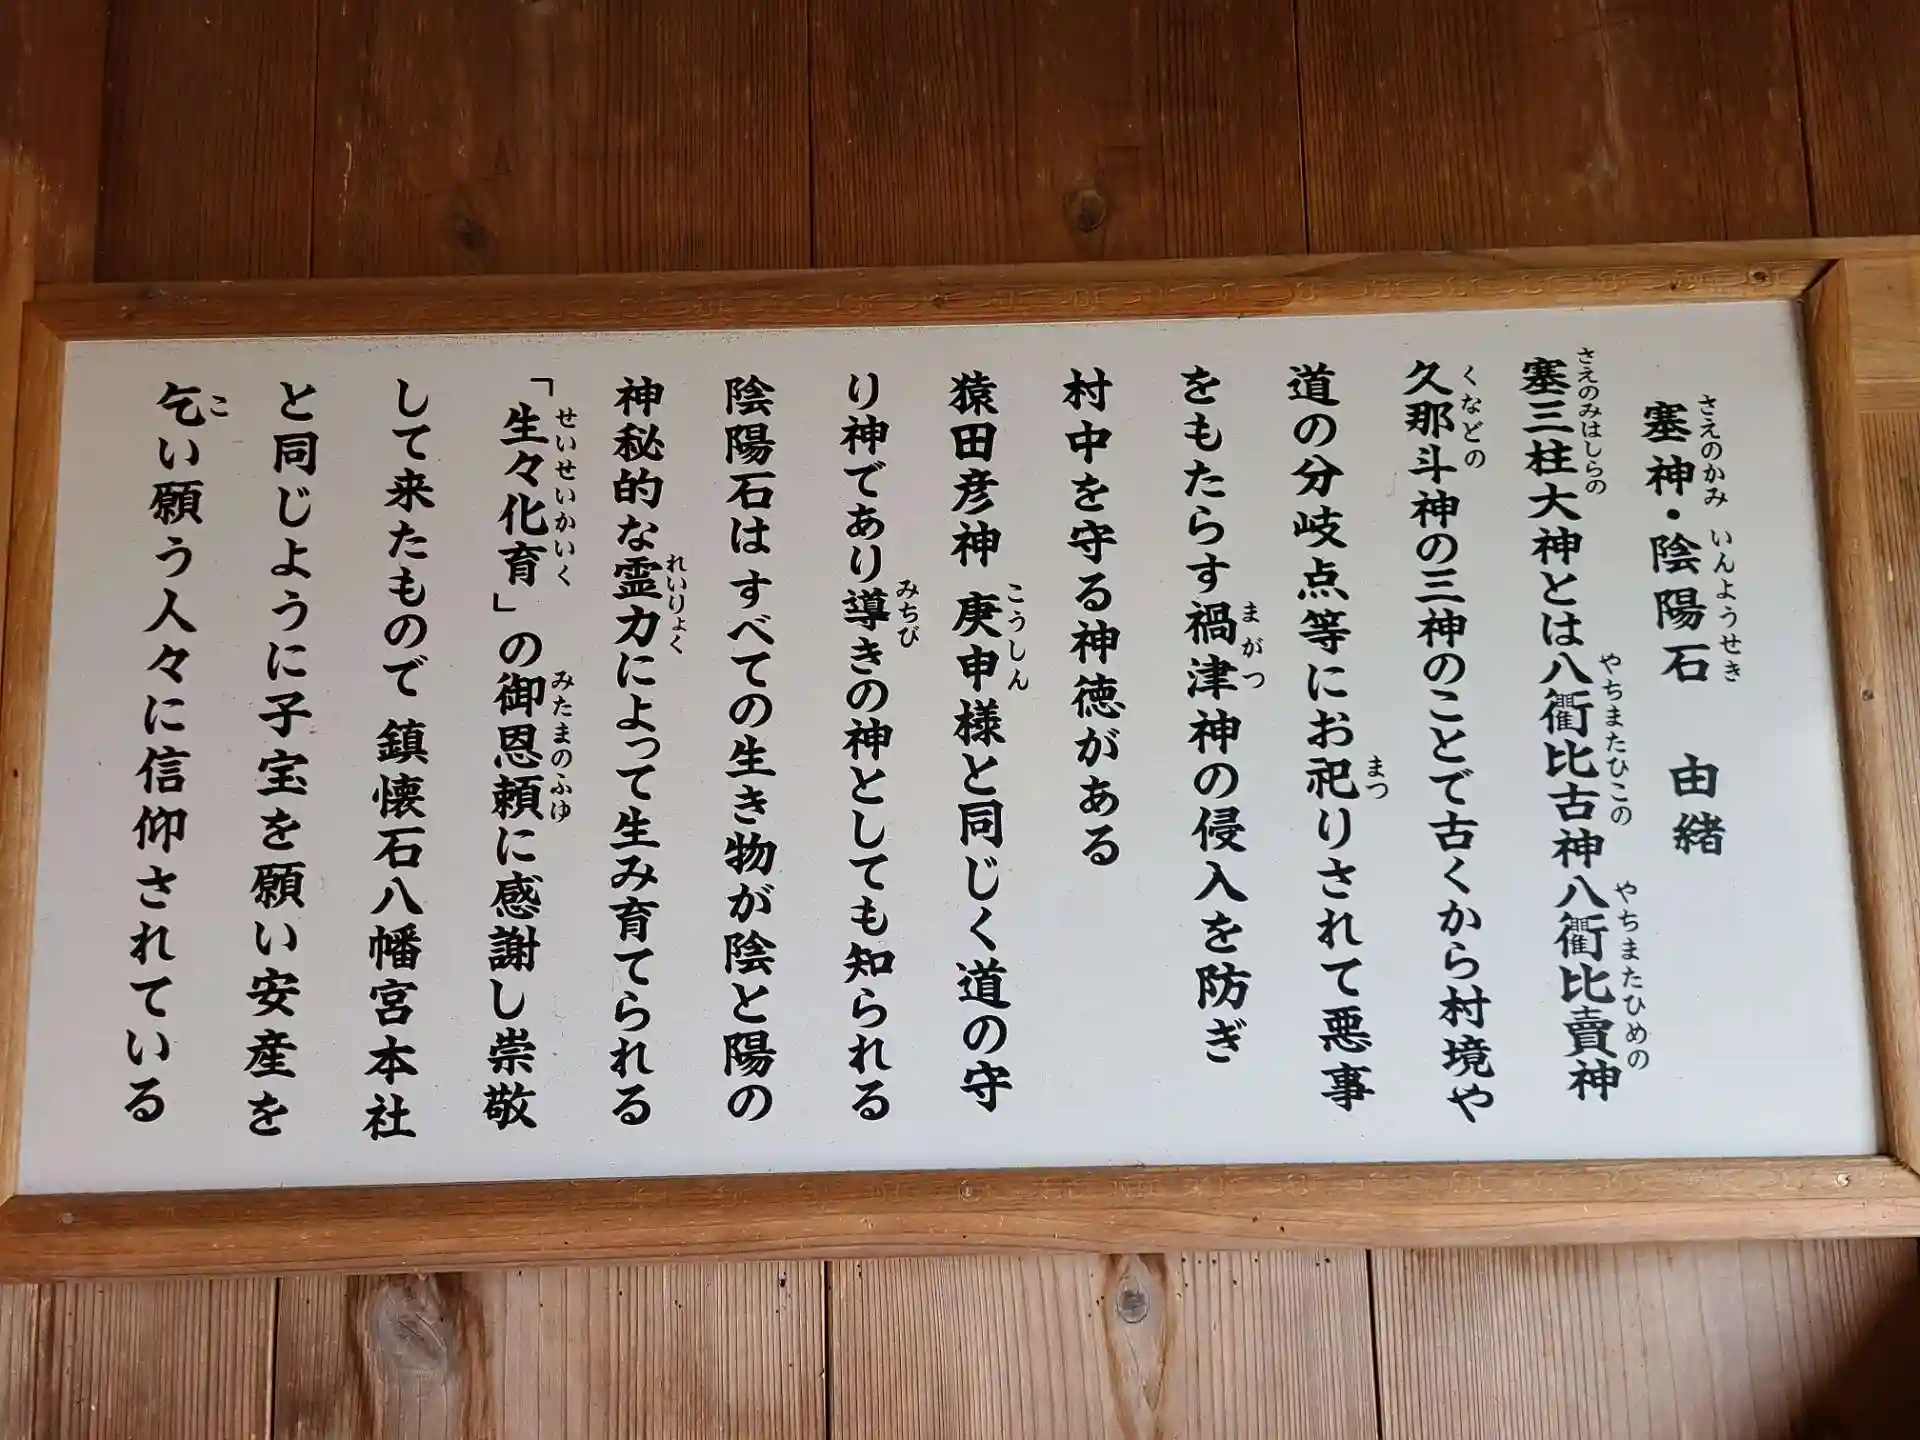 塞神・陰陽石　由緒
塞三柱大神とは八衢比古神八衢比賣神
久那斗神の三神のことで古くから村境や
道の分岐点等にお祀りされて悪事
をもたらす禍津神の侵入を防ぎ
村中を守る神徳がある
猿田彦神　庚申様と同じく道の守
り神であり導きの神としても知られる
陰陽石はすべての生き物が陰と陽の
神秘的な霊力によって生み育てられる
「生々化育」の御恩頼に感謝し崇敬
して来たもので　鎮懐石八幡宮本社
と同じように子宝を願い安産を
乞い願う人々に信仰されている